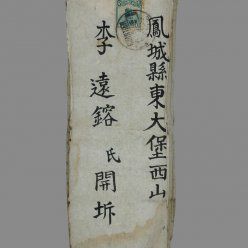 鳳城縣東大堡西山
李遠鎔氏開拆